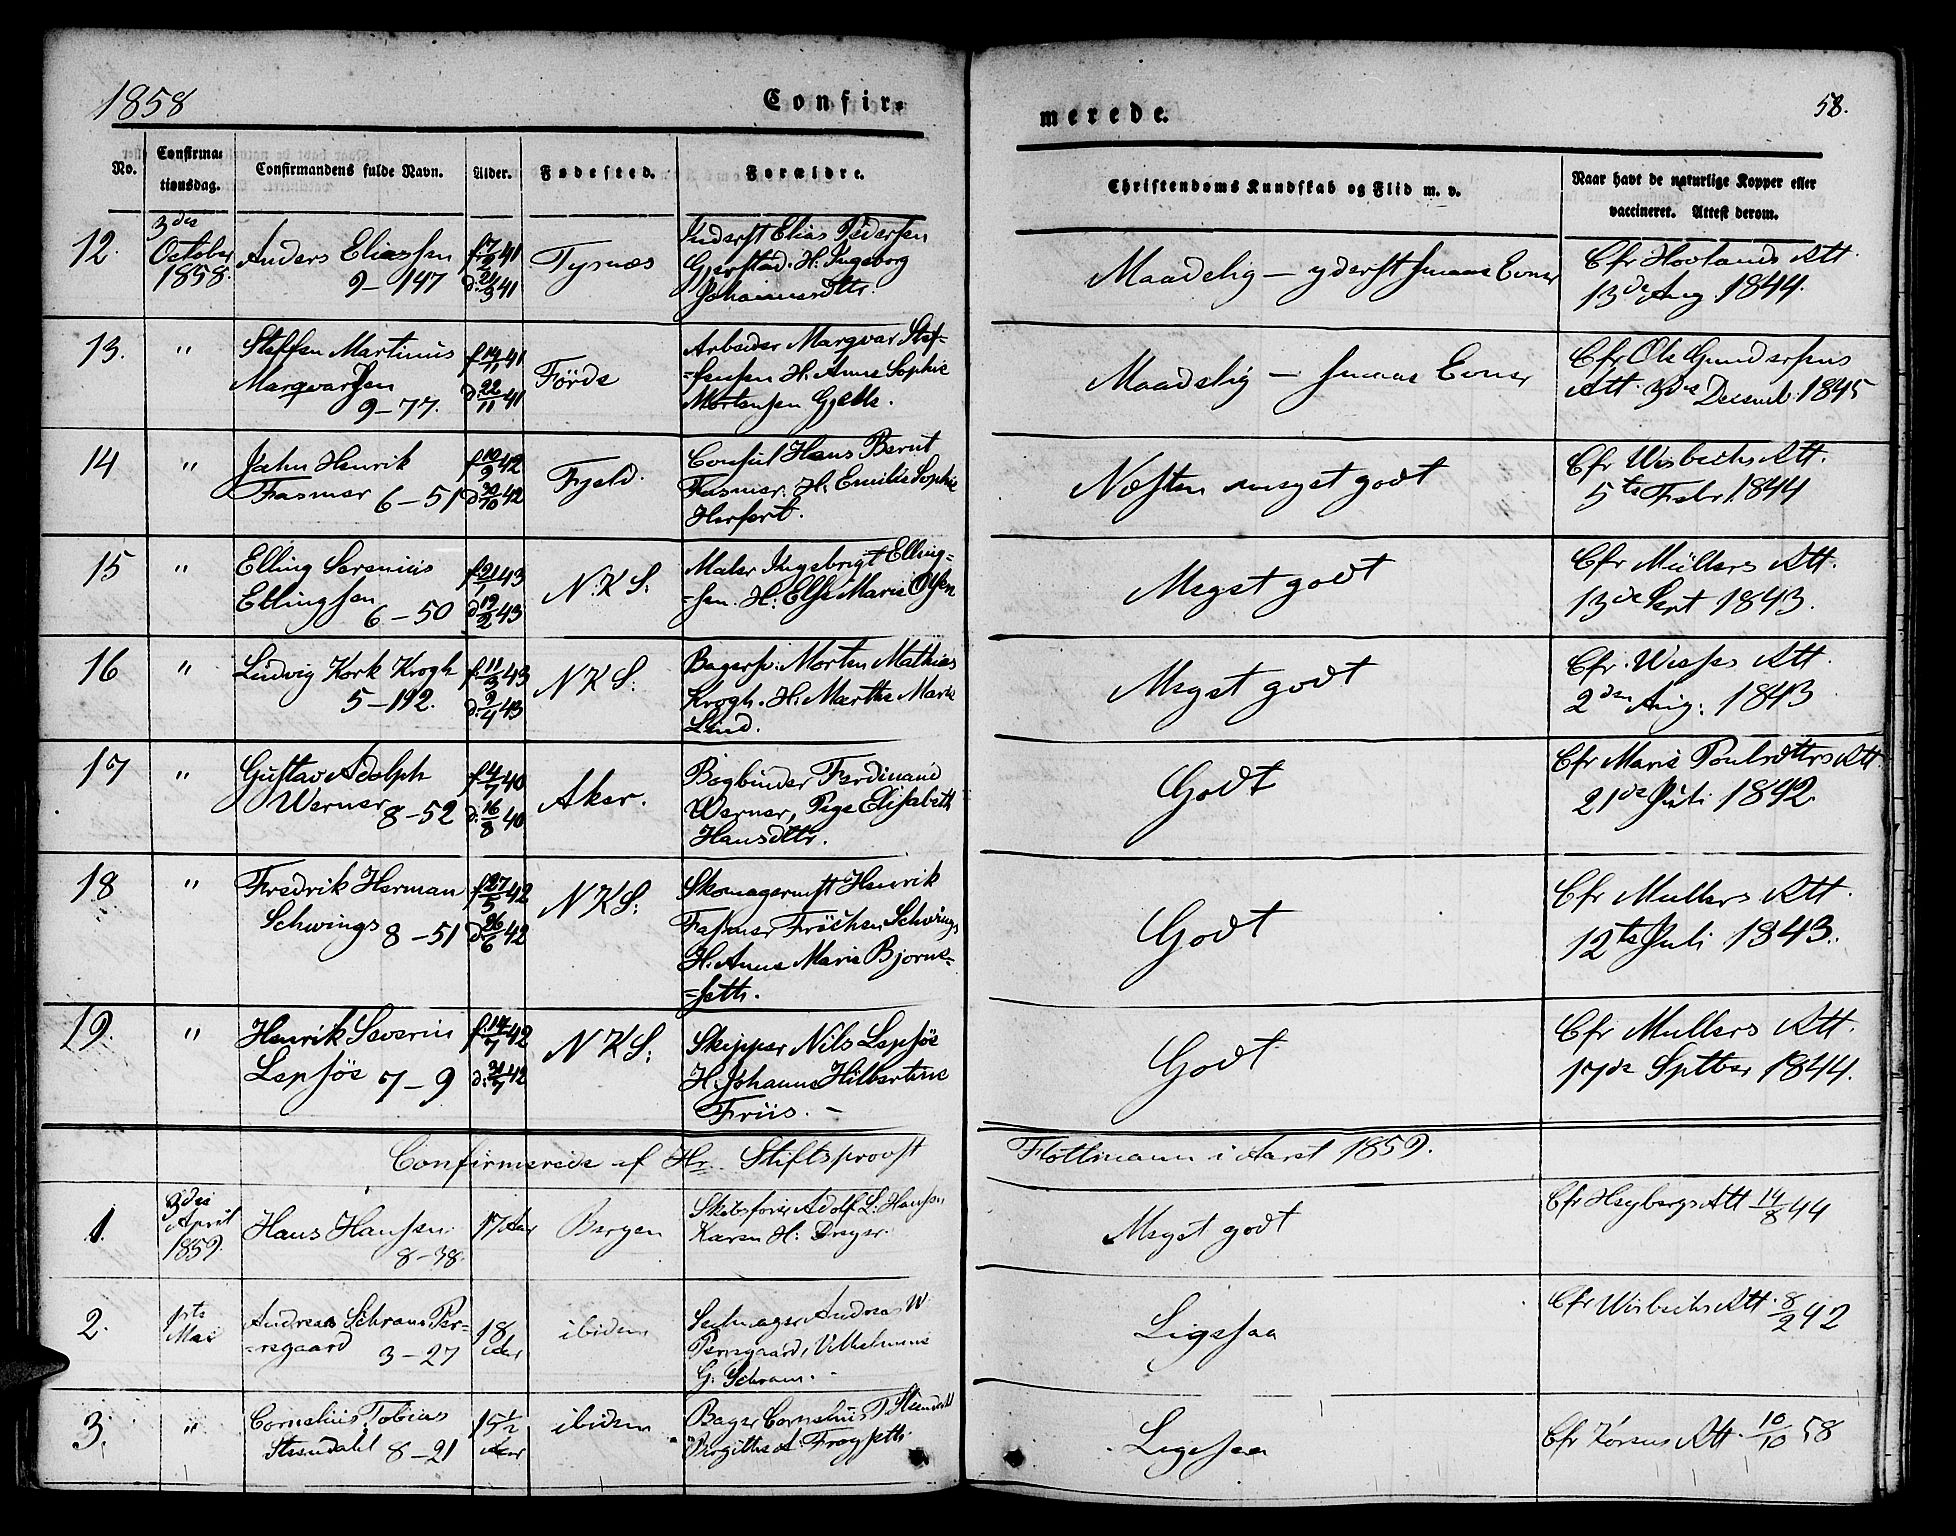 1858
Confir-
merede.
58.
No.
Confirma-
tionsdag.
Confirmandens fulde Navn.
Alder.
Fødested.
Forældre.
Christendoms Kundskab og Flid m. v.
Naar havt de naturlige Kopper eller
vaccineret. Attest derom.
12.
3die
October
1858.
Anders Eliassen
9-147
41
41
Tysnæs
Inderst Elias Pedersen
Gjerstad. H: Ingeborg
Johannesdttr.
Maadelig - yderst smaae Evner
Cfr Hovlands Att.
13de Aug 1844.
13.
"
Steffen Martinus
Marqvardsen
9-77.
f 14/1 41
d 22/11 41
Förde
Arbeider Marqvar Stef-
=fensen H: Anne Sophie
Mortensen Gjelle.
Maadelig - smaae Evner
Cfr Ole Gundersens
Att. 3die Decemb. 1845
14
"
Jahn Henrik
Fasmer 6-51
f 10/9 42
d 30/10 42
Fjeld.
Consul Hans Bernt
Fasmer. H. Emilie Sophie
Herfert.
Næsten meget godt
Cfr Wisbechs Att.
5te Febr. 1844
15
"
Elling Serenius
Ellingsen
6-50
43
d 19/2 43
N.K.S:
Maler Ingebrigt Elling=
=sen. H: Else Marie Olsen
Meget godt
Cfr Müllers Att.
13de Sept 1843.
16
"
Ludvig Kork Krogh
5-192.
f. 11/3 43
d: 9/4 43
NKS:
Bagersv. Morten Mathias
Krogh. H: Marthe Marie
Lind.
Meget godt
Cfr. Wesses Att.
2den Aug: 1843
17
"
Gustav Adolph
Werner 8-52
f 4/7 40
d: 16/8 40
Aker.
Bogbinder Ferdinand
Werner, Pige Elisabeth
Hansdttr.
Godt
Cfr Marie Poulsdttrs Att.
21de Juli 1842.
18
"
Fredrik Herman
Schwings 8-51
f 27/5 42
d 26/6 42
NKS:
Skomagermst Henrik
Fasmer Fröchen Schwings
H. Anne Marie Bjorne=
=seth.
Godt
Cfr Mullers Att.
12te Juli 1843.
19.
"
Henrik Severin
Lepsöe 7-9
42
d: 31/7 42
NKS:
Skipper Nils Lepsöe
H. Johanne Hilbertine
Friis. -
Godt
Cfr Mullers Att.
17de Sptber 1844.
Confirmerede af Hr. Stiftsprovst
Flottmann i Aaret 1859.
1.
3die
April
1859.
Hans Hansen.
8-38.
17 Aar
Bergen
Adolf L. Hansen
Karen H: Dreyer.
Meget godt
Cfr Heybergs Att 14/8 44
2.
1ste
Mai
Andreas Schram Per-
=regaard 3-27
18
Aar
ibidem
Seilmager Andreas W.
Perregaard, Vilhelmine
G. Schram. -
Ligesaa
Cfr Wisbechs Att. 8/2 42
3.
"
Cornelius Tobias
Steendahl 8-21
15½
Aar
ibidem
Bager Cornelius T Steendahl
Birgitte A. Frøyseth.
Ligesaa
Cfr Att. 10/10 58